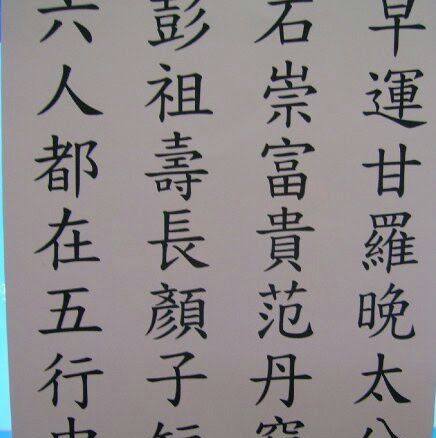 早運甘羅晚太公
石崇富貴范丹窮
彭祖壽長顏子短
六人都在五行中